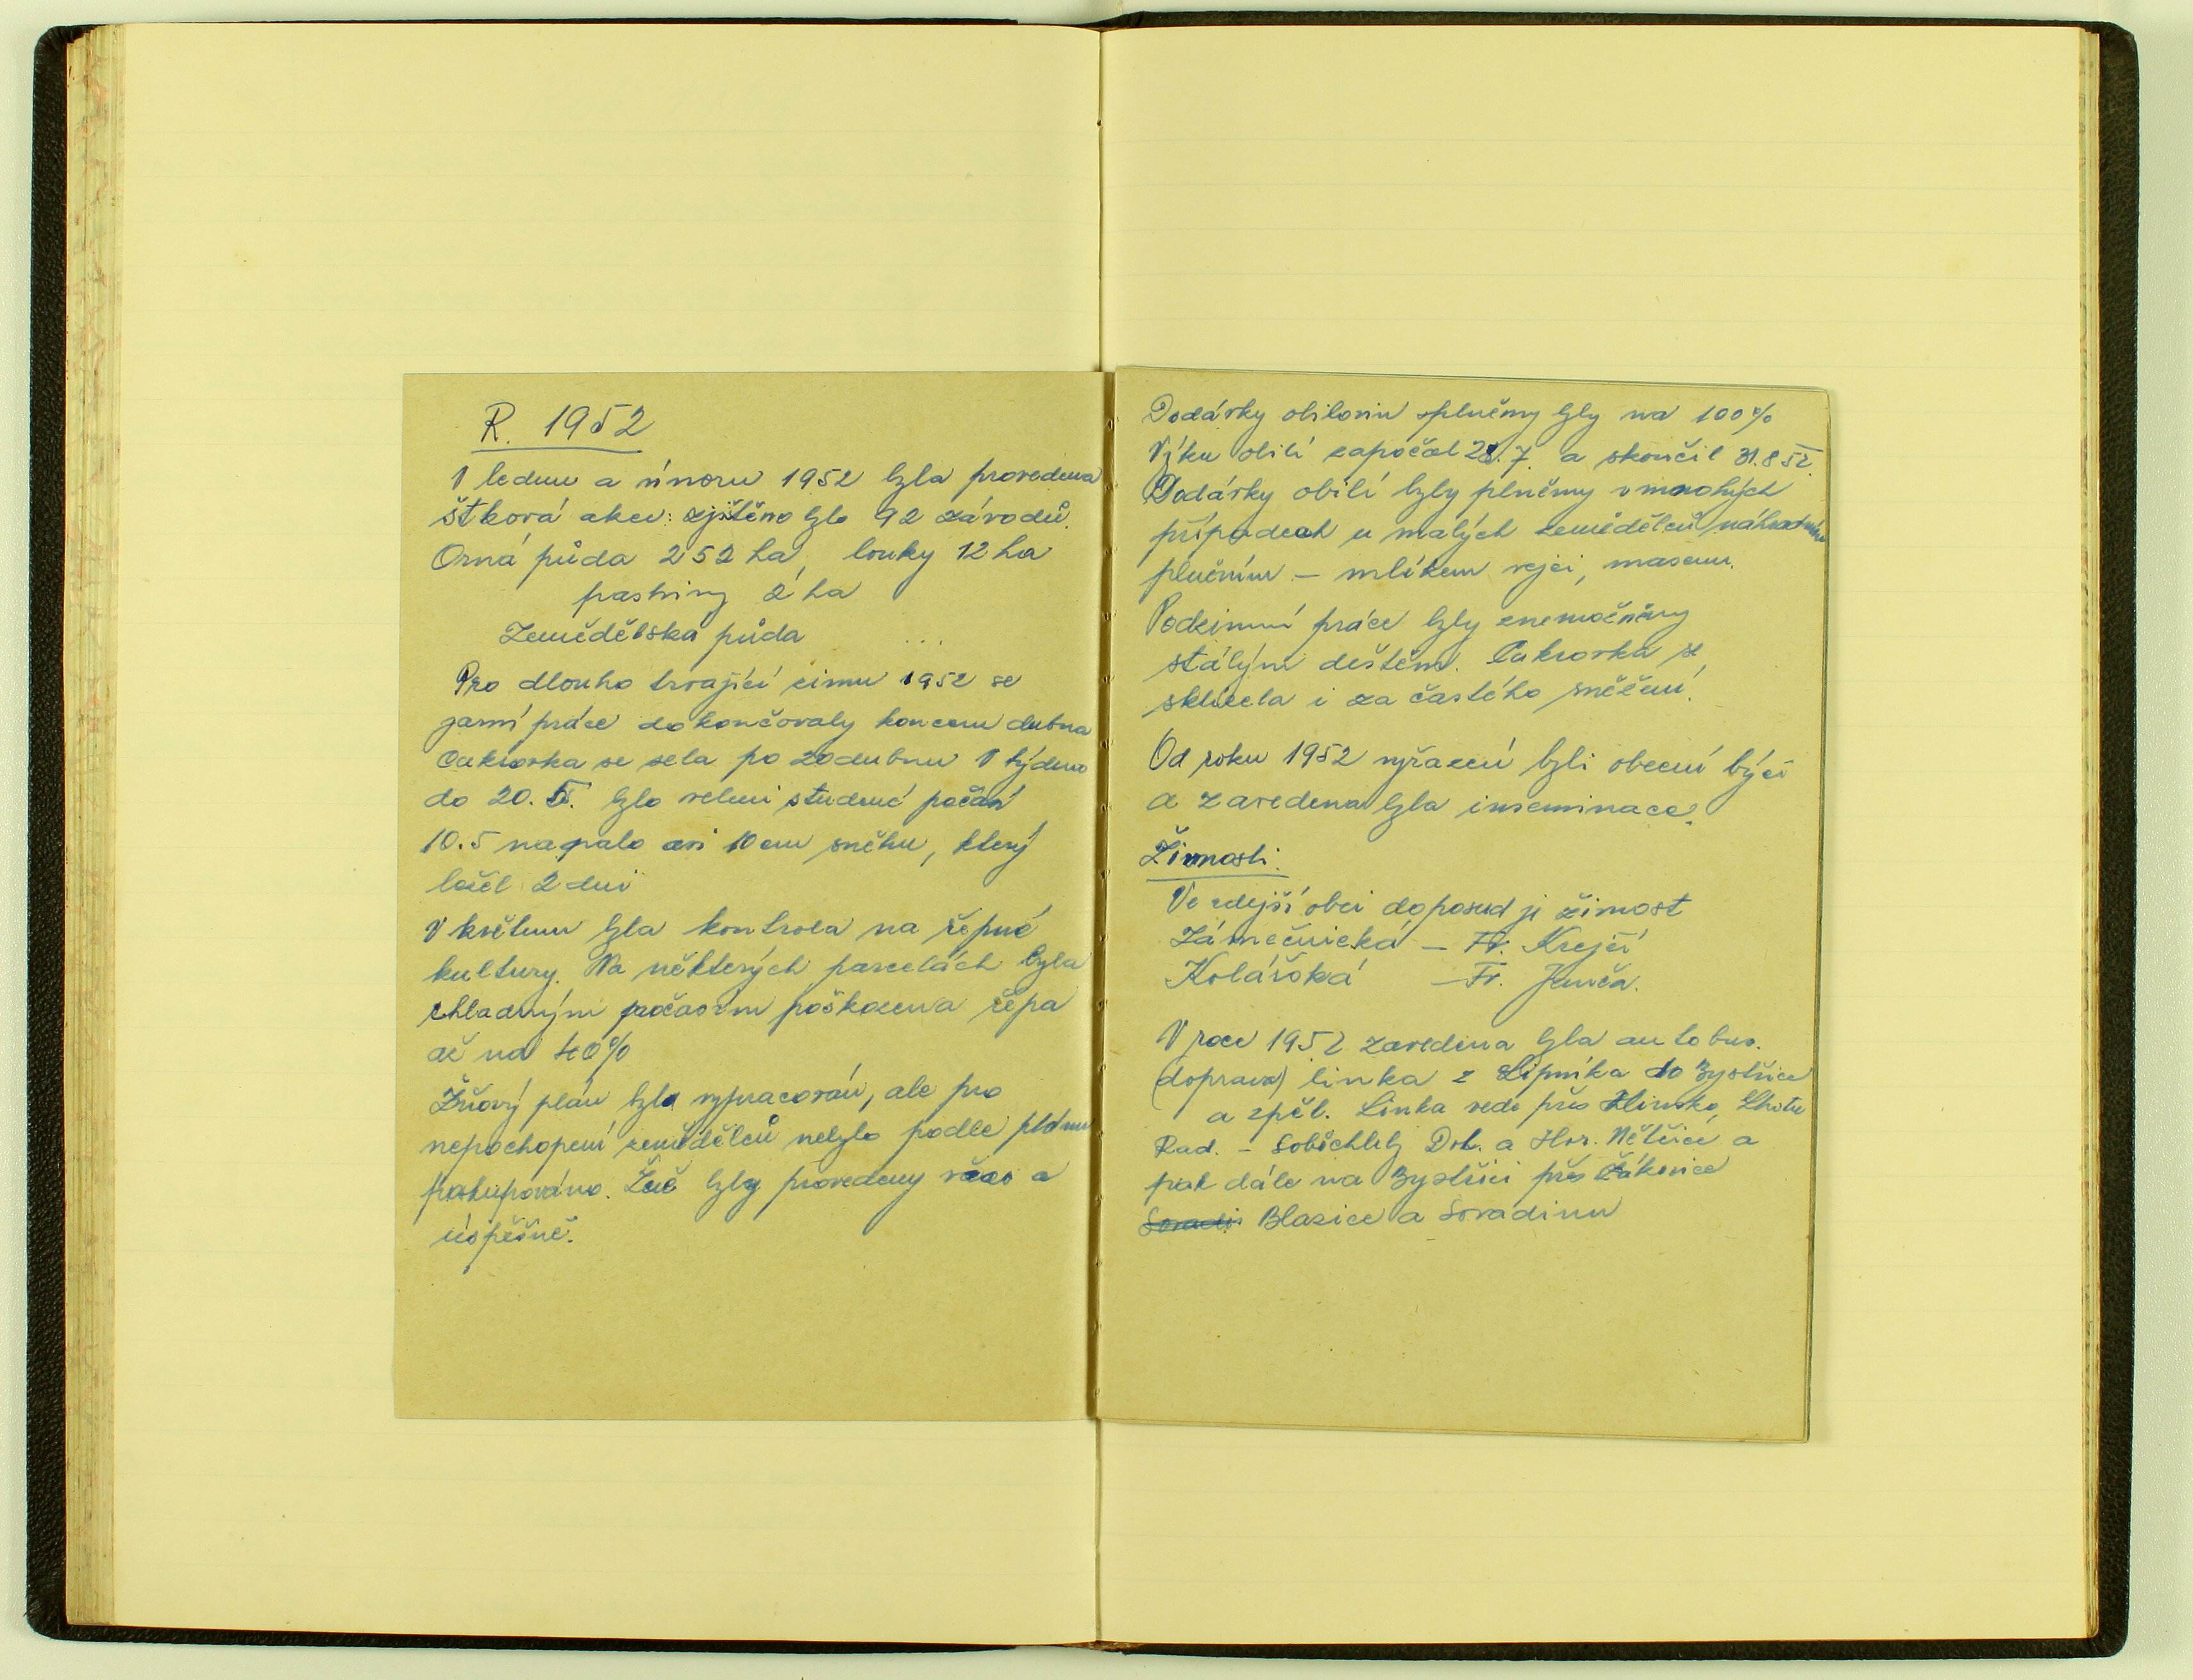 R. 1952
V lednu a únoru 1952 byla provedena
štková akce: zjištěno bylo 92 závodů.
Orná půda 252 ha, louky 12 ha
pastviny 2 ha
Zemědělská půda ...
Pro dlouho trvající zimu 1952 se
jarní práce dokončovaly koncem dubna
Cukrovka se sela po 20 dubnu V týdnu
do 20. 5. bylo velmi studené počasí
10.5 napalo asi 10 cm sněhu, který
ležel 2 dni
V květnu byla kontrola na řepné
kultury. Na některých parcelách byla
chladným počasím poškozena řepa
až na 40%
Žňový plán byla vypracován, ale pro
nepochopení zemědělců nebylo podle plánu
postupováno. Žně byly provedeny včas a
úspěšně.
Dodávky obilovin splněny byly na 100%
Výku obilí započal 28.7. a skončil 31.8 52.
Dodávky obilí byly plněny v mnohých
případech u malých zemědělců náhradním
plněním – mlékem vejci, masem.
Podzimní práce byly znemožněny
stálým deštěm. Cukrovka se
sklízela i za častého sněžení.
Od roku 1952 vyřazeni byli obecní býci
a zavedena byla inseminace.
Živnosti.
Ve zdejší obci doposud je živnost
Zámečnická – Fr. Krejčí
Kolářská – Fr. Janča.
V roce 1952 zavedena byla autobus.
(doprava) linka z Lipníka do Bystřice
a zpět. Linka vede přes Hlinsko, Lhotu
Rad. – Soběchleby Dol. a Hor. Nětčice a
pak dále na Bystřici přes Žákovice
Blazice a Soradinu